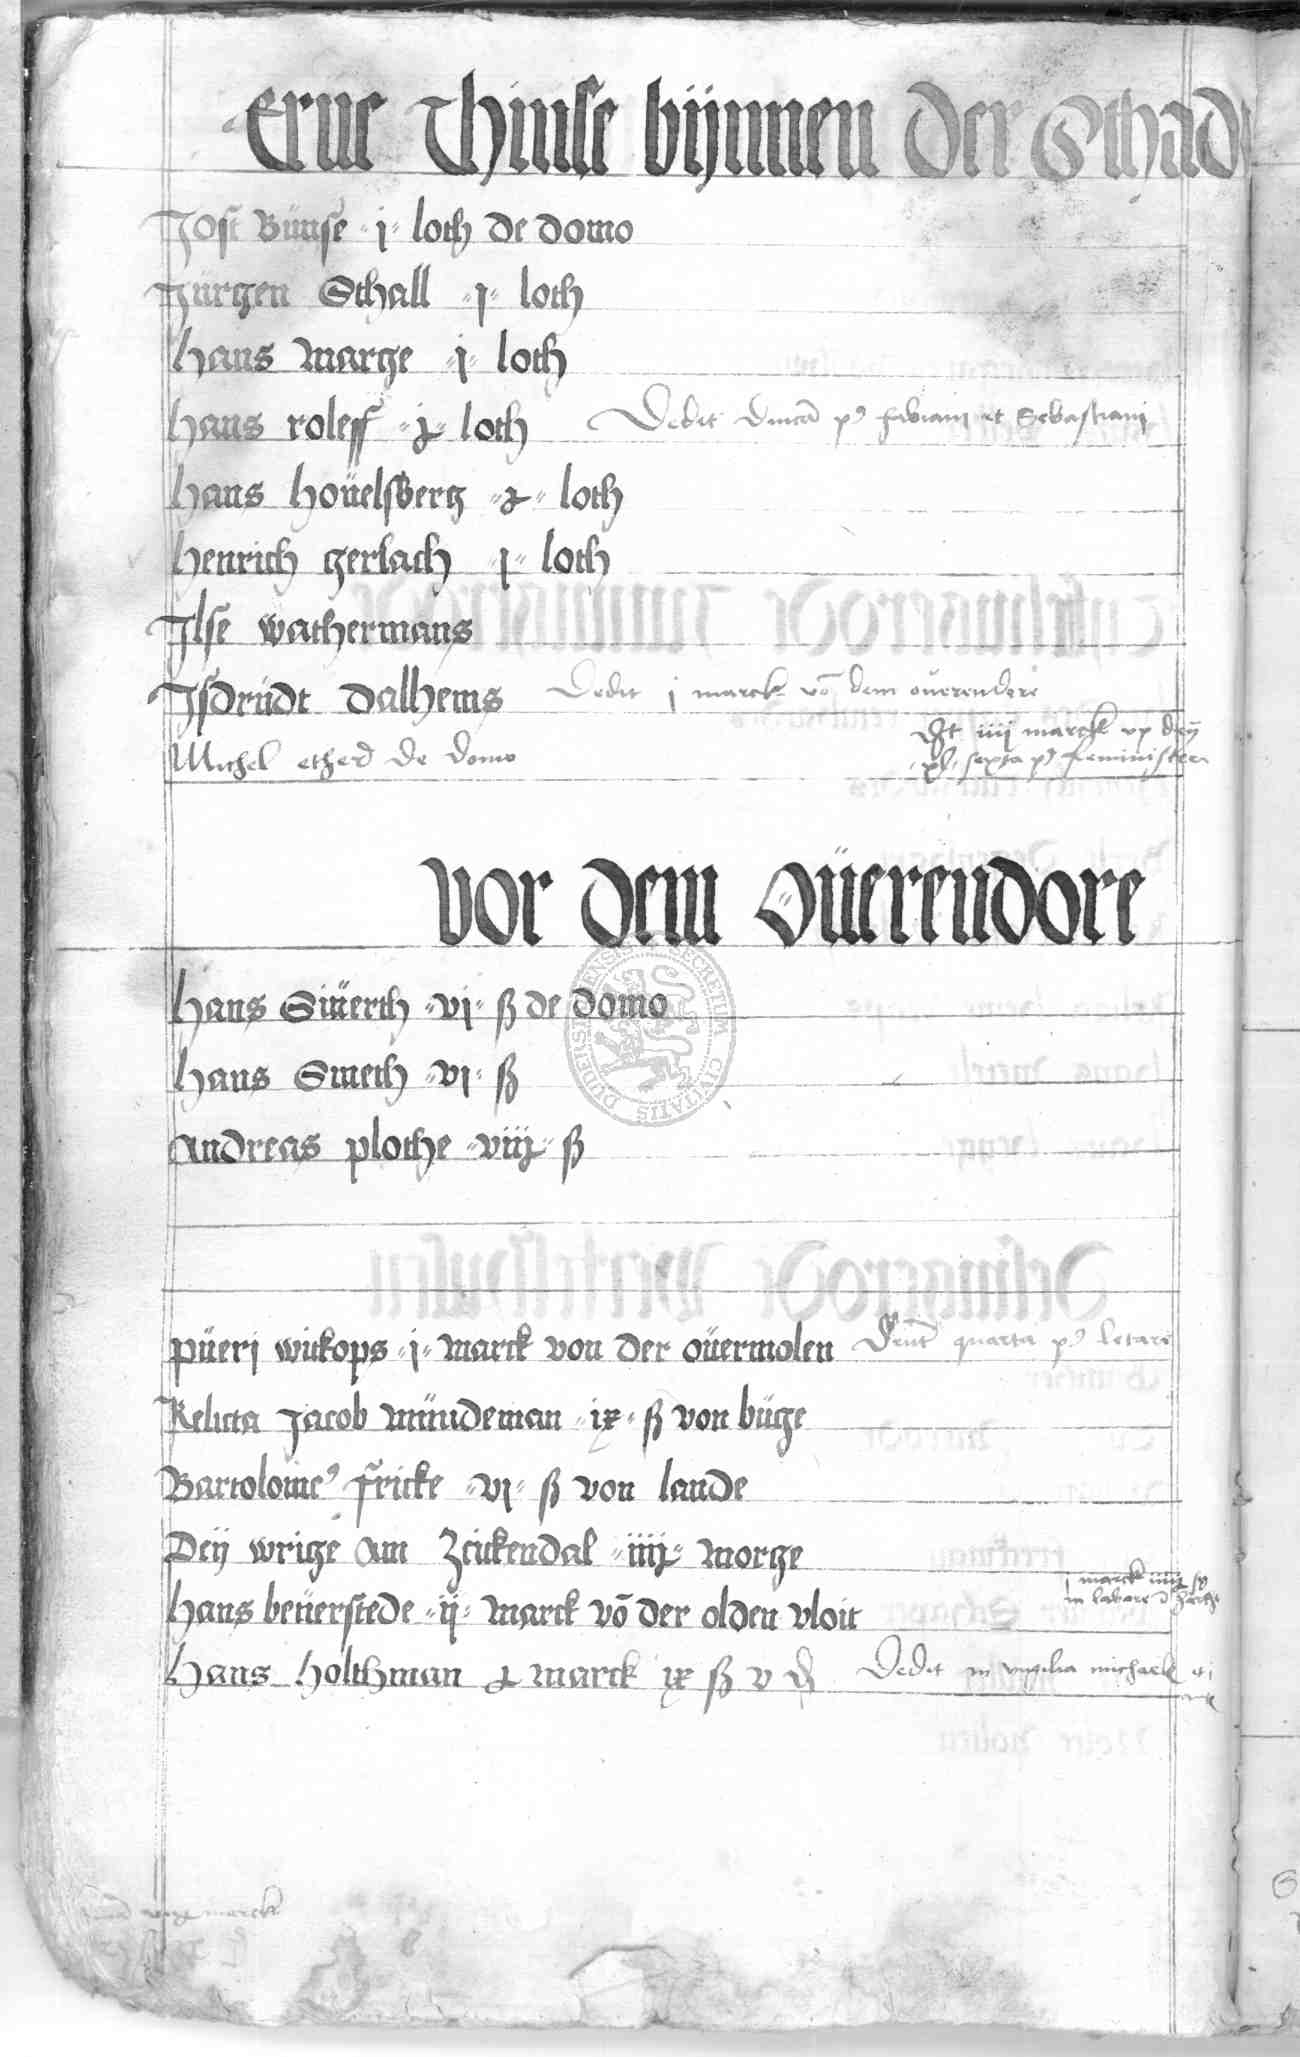 Erue Thinse bijnnen der Sthad
Jost Bünse j loth de domo
Jürgen Sthall j loth
hans marge j loth
hans roleff loth Dedit p9 fabiani et Sebastiani
hans hoüelsberg loth
henrich gerlach j loth
Jlse wathermans
Jsdrüdt dalhems Dedit j marck vō dem ouerendere
iiij marck vp deÿ
Michel de domo
sexta p9
vor dem oüerendore
hans Siüerth vj ß de domo
hans Smeth vj ß
Andreas plothe ß
SECRETUM CIVITATIS DUDERSTADENSIS
püeri wickops j marck von der oüermolen quarta p9 letare
Relicta Jacob mündeman ix ß von büge
Bartolome9 fricke vj ß von lande
Deÿ wrige am Zeickendal morge
j marck
hans beüerstede ij marck vō der olden vloit
hans holthman marck ix ß v Dedit in vigilia michaelis
marck